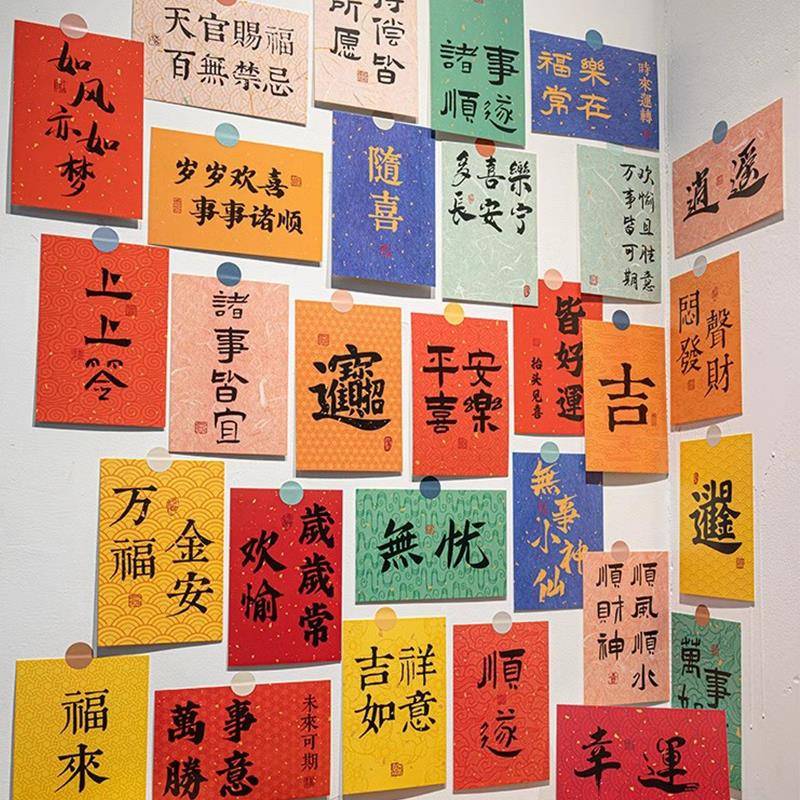 如风
亦如梦
天官賜福
百無禁忌
偿皆
所愿
諸事
順遂
時來運轉
樂在
福常
岁岁欢喜
事事诸顺
隨喜
多喜樂
長安宁
欢愉且胜意
万事皆可期
逍遥
上上签
諸事皆宜
招財進寶
平安
喜樂
皆好運
抬头见喜
吉
悶聲
發財
万福
金安
歲歲常
欢愉
無忧
無事
小神仙
日進斗金
順風順水
順財神
福來
萬事
勝意
未來可期
吉祥
如意
順遂
幸運
萬事
如